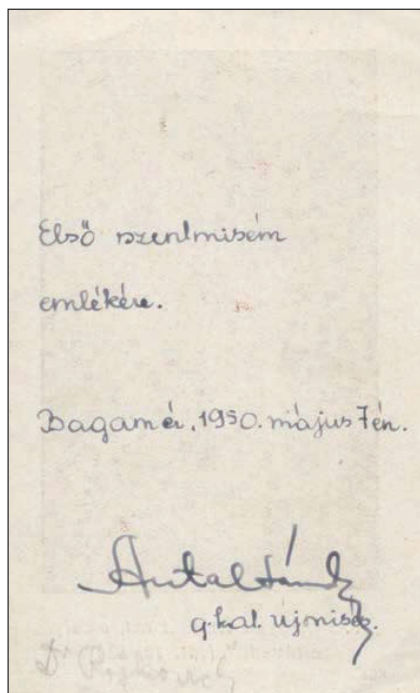 Első szentmisém
emlékére.
Bagamér, 1950. május 7én.
Antal
g.kat. újmisés.